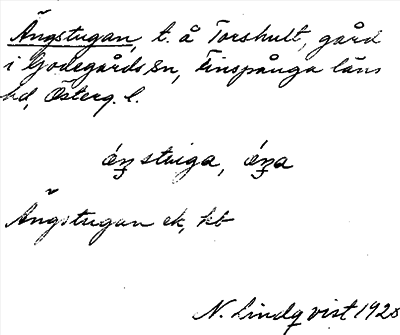 Ängstugan, t. å Torshult, gård
i Godegårds sn, Finspånga läns
hd, Österg. l.
Ängstugan ek, kb
N. Lindqvist 1928